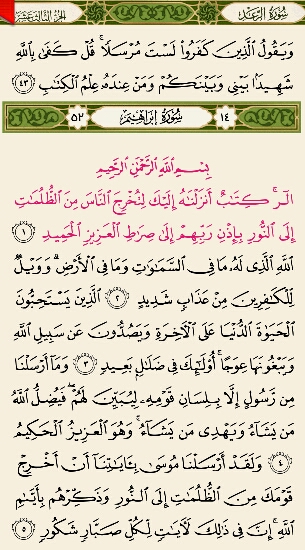 سُورَةُ الرَّعْدِ الجزء الثالث عشر
وَيَقُولُ الَّذِينَ كَفَرُوا۟ لَسْتَ مُرْسَلًا ۚ قُلْ كَفَىٰ بِاللَّهِ
شَهِيدًۢا بَيْنِى وَبَيْنَكُمْ وَمَنْ عِندَهُۥ عِلْمُ الْكِتَٰبِ ٤٣
١٤ سُورَةُ إِبْرَاهِيمَ ٥٢
بِسْمِ اللَّهِ الرَّحْمَٰنِ الرَّحِيمِ
الٓر ۚ كِتَٰبٌ أَنزَلْنَٰهُ إِلَيْكَ لِتُخْرِجَ النَّاسَ مِنَ الظُّلُمَٰتِ
إِلَى النُّورِ بِإِذْنِ رَبِّهِمْ إِلَىٰ صِرَٰطِ الْعَزِيزِ الْحَمِيدِ ١
اللَّهِ الَّذِى لَهُۥ مَا فِى السَّمَٰوَٰتِ وَمَا فِى الْأَرْضِ ۗ وَوَيْلٌ
لِّلْكَٰفِرِينَ مِنْ عَذَابٍ شَدِيدٍ ٢ الَّذِينَ يَسْتَحِبُّونَ
الْحَيَوٰةَ الدُّنْيَا عَلَى الْءَاخِرَةِ وَيَصُدُّونَ عَن سَبِيلِ اللَّهِ
وَيَبْغُونَهَا عِوَجًا ۚ أُو۟لَٰٓئِكَ فِى ضَلَٰلٍۭ بَعِيدٍ ٣ وَمَآ أَرْسَلْنَا
مِن رَّسُولٍ إِلَّا بِلِسَانِ قَوْمِهِۦ لِيُبَيِّنَ لَهُمْ ۖ فَيُضِلُّ اللَّهُ
مَن يَشَآءُ وَيَهْدِى مَن يَشَآءُ ۚ وَهُوَ الْعَزِيزُ الْحَكِيمُ
٤ وَلَقَدْ أَرْسَلْنَا مُوسَىٰ بِـَٔايَٰتِنَآ أَنْ أَخْرِجْ
قَوْمَكَ مِنَ الظُّلُمَٰتِ إِلَى النُّورِ وَذَكِّرْهُم بِأَيَّىٰمِ
اللَّهِ ۚ إِنَّ فِى ذَٰلِكَ لَءَايَٰتٍ لِّكُلِّ صَبَّارٍ شَكُورٍ ٥